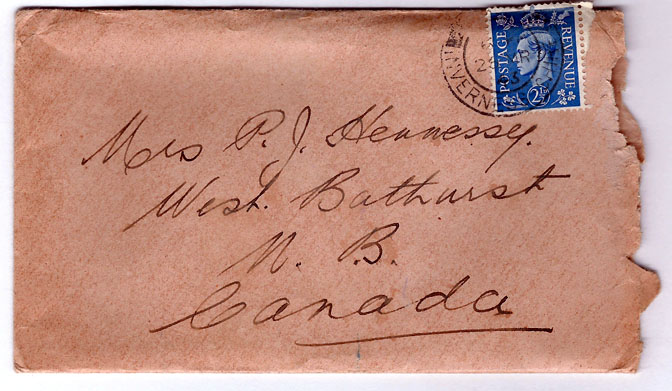 POSTAGE
REVENUE
2½
Mrs P. J. Hennessy.
West Bathurst
N. B.
Canada